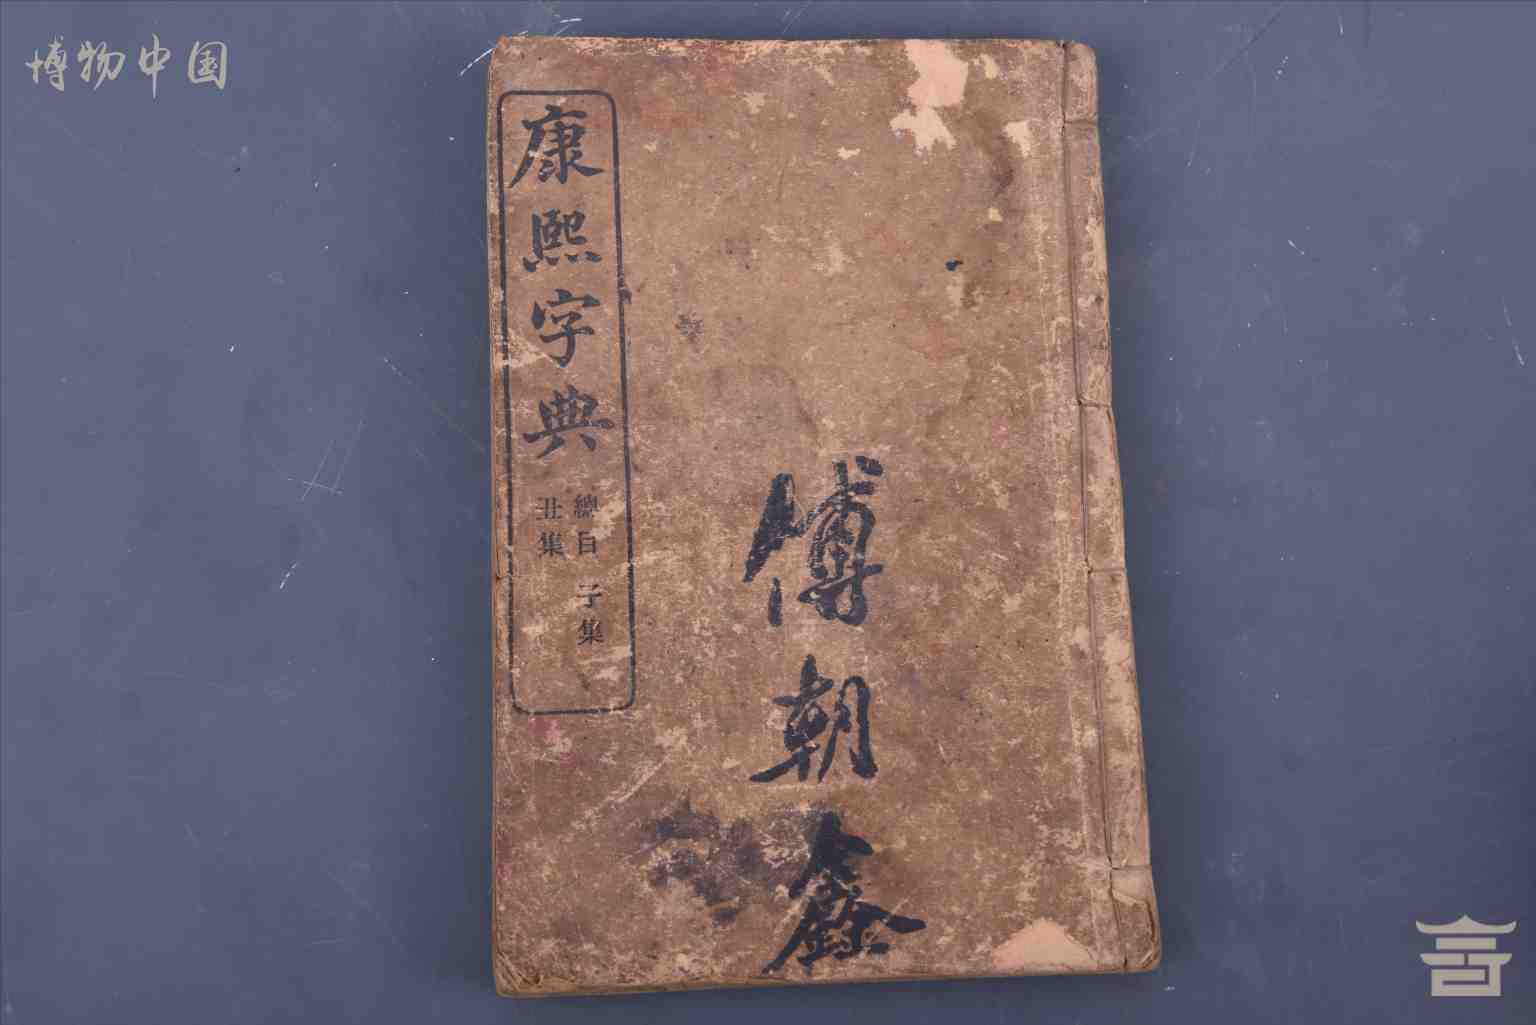 博物中国
康熙字典
總目 子集
丑集
傅朝鑫